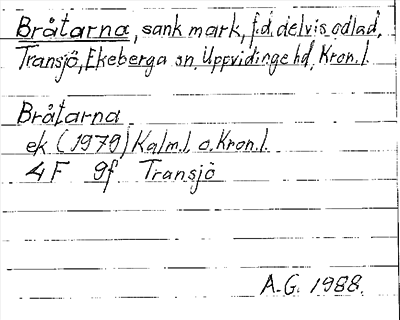 Bråtarna, sank mark, f.d. delvis odlad,
Transjö, Ekeberga sn, Uppvidinge hd, Kron.l.
Bråtarna
ek. (1979) Kalm.l. o. Kron.l.
4F 9f Transjö
A.G. 1988.